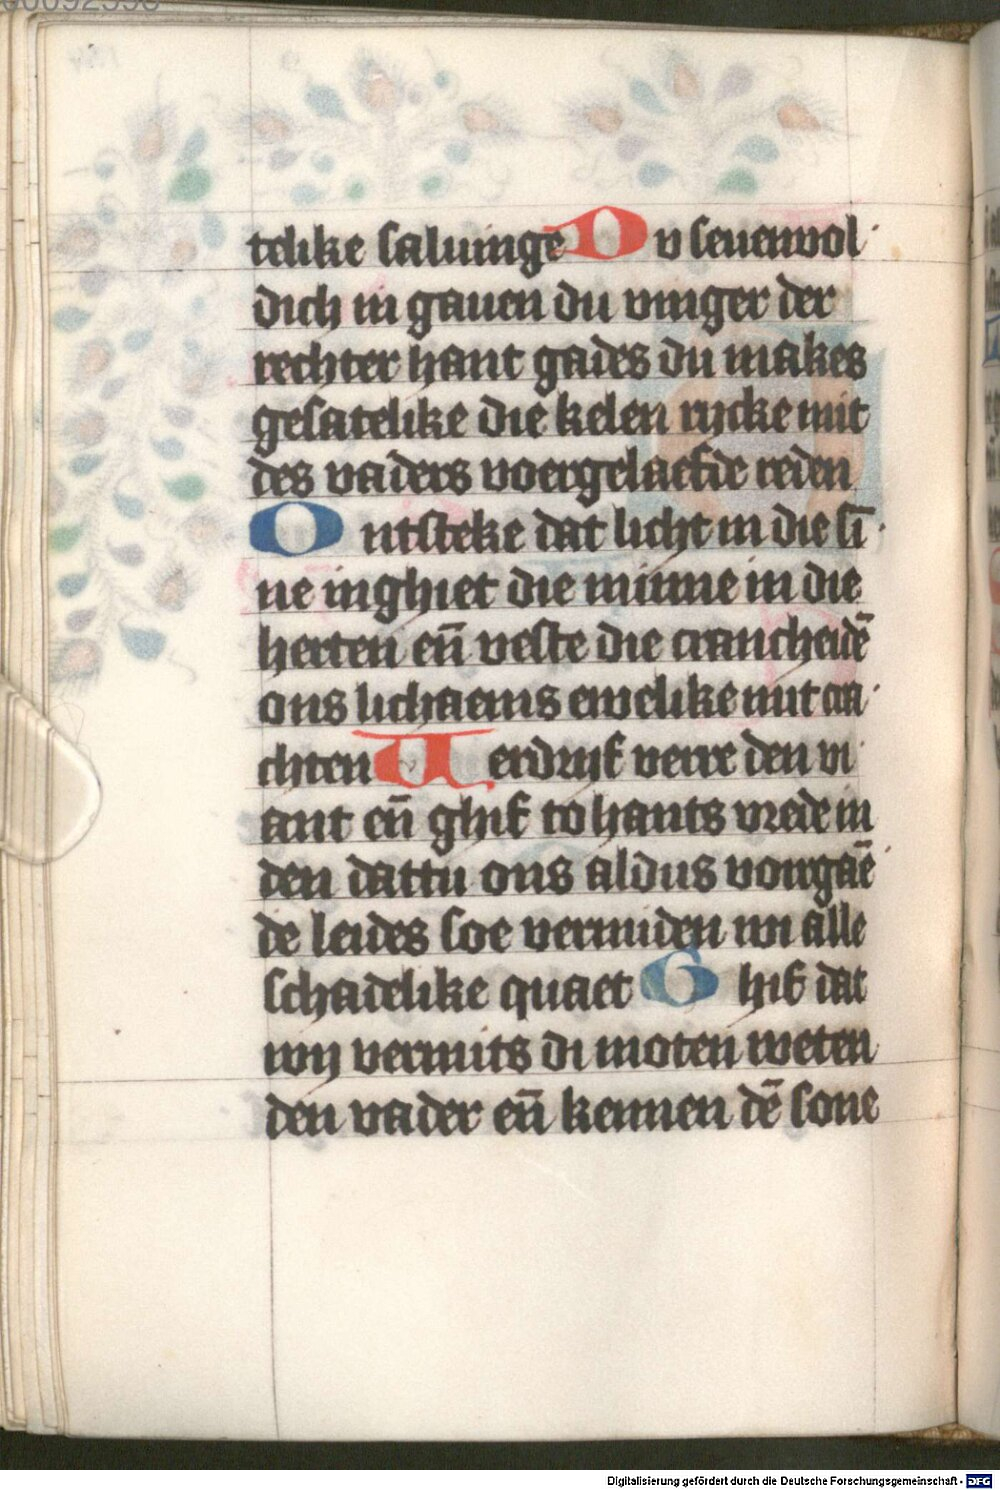 telike saluinge Du seuenvol
dich in gauen du vinger der
rechter hant gades du makes
gesatelike die kelen rycke mit
des vaders voergelaefde reden
Ontsteke dat licht in die sī
ne inghiet die minne in die
herten en̄ veste die crancheidē
ons lichaems ewelike mit cra
chten Verdryf verre den vi
ant en̄ ghif to hants vrede in
den dattu ons aldus vorgaē
de leides soe vermiden wi alle
schadelike quaet Ghif dat
wy vermits di moten weten
den vader en̄ kennen dē sone
Digitalisierung gefördert durch die Deutsche Forschungsgemeinschaft - DFG